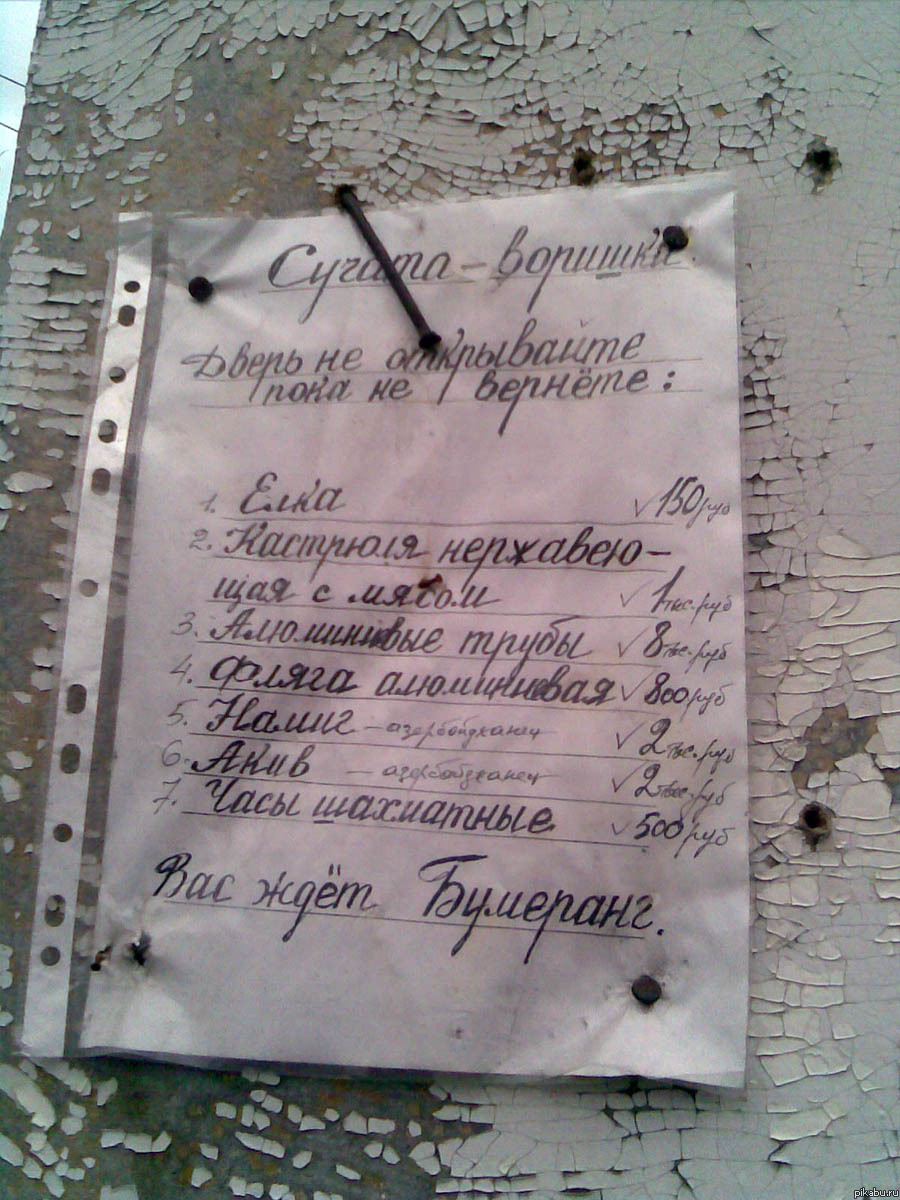 Сучата - воришки.
Дверь не открывайте
пока не вернёте:
1. Елка ✓ 150 руб
2. Кастрюля нержавею-
щая с мясом ✓ 1 тыс. руб
3. Алюминивые трубы ✓ 8 тыс. руб
4. Фляга алюминивая ✓ 800 руб
5. Намиг - азербойджанец ✓ 2 тыс. руб
6. Акив - азербойджанец ✓ 2 тыс. руб
7. Часы шахматные ✓ 500 руб
Вас ждёт Бумеранг.
pikabu.ru